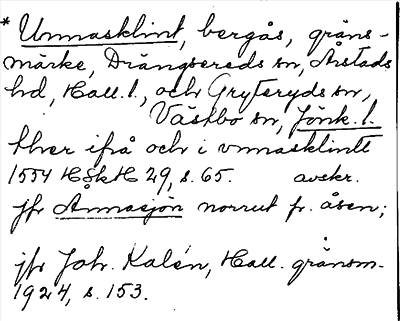 * Unnasklint, bergås, gräns-
märke, Drängsereds sn, Årstads
hd, Hall. l., och Gryteryds sn,
Västbo sn, Jönk. l.
ther ifrå och i vnnasklintt
1554 HSkH 29, s. 65. avskr.
jfr Annasjön norrut fr. åsen;
jfr Joh. Kalén, Hall. gränsm.
1924, s. 153.